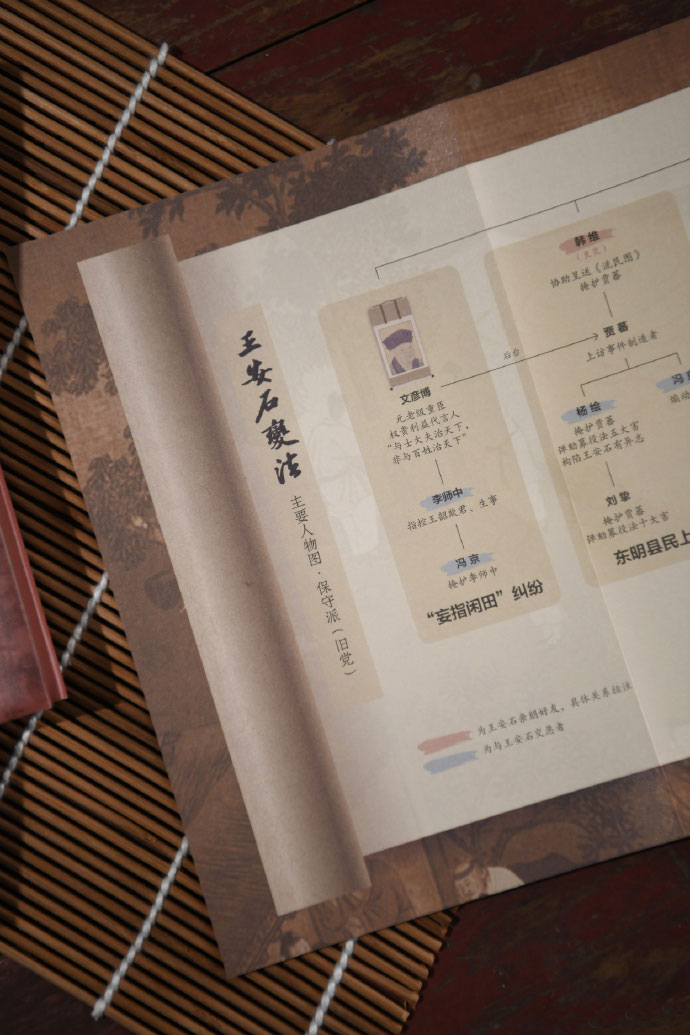 王安石變法
主要人物图·保守派（旧党）
文彦博
元老级重臣
权贵利益代言人
“与士大夫治天下，
非与百姓治天下”
李师中
指控王韶欺君、生事
冯京
掩护李师中
“妄指闲田”纠纷
后台
韩维
协助呈送《流民图》
掩护贾蕃
贾蕃
上访事件制造者
杨绘
掩护贾蕃
弹劾募役法五大害
构陷王安石有异志
刘挚
掩护贾蕃
弹劾募役法十大害
东明县民上
冯
为王安石亲朋好友，具体关系括注
为与王安石交恶者